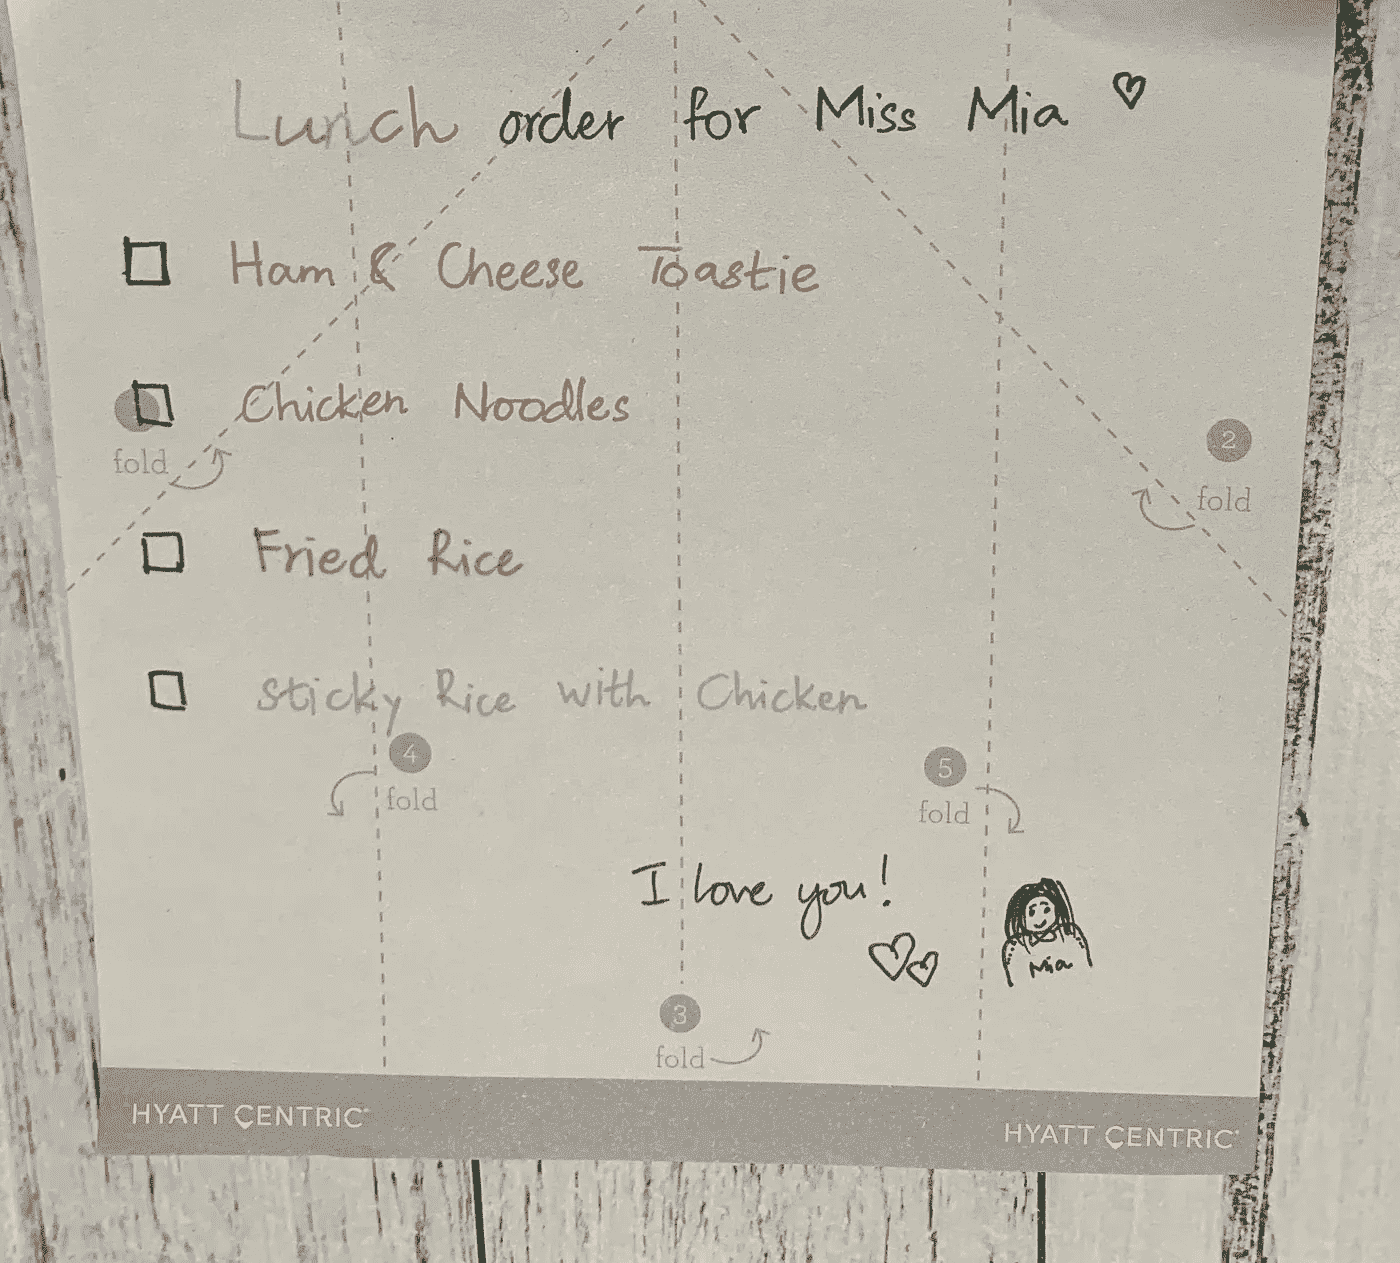 Lunch order for Miss Mia
Ham & Cheese Toastie
Chicken Noodles
fold
2
fold
Fried Rice
Sticky Rice with Chicken
4
fold
5
fold
I love you!
Mia
3
fold
HYATT CENTRIC
HYATT CENTRIC